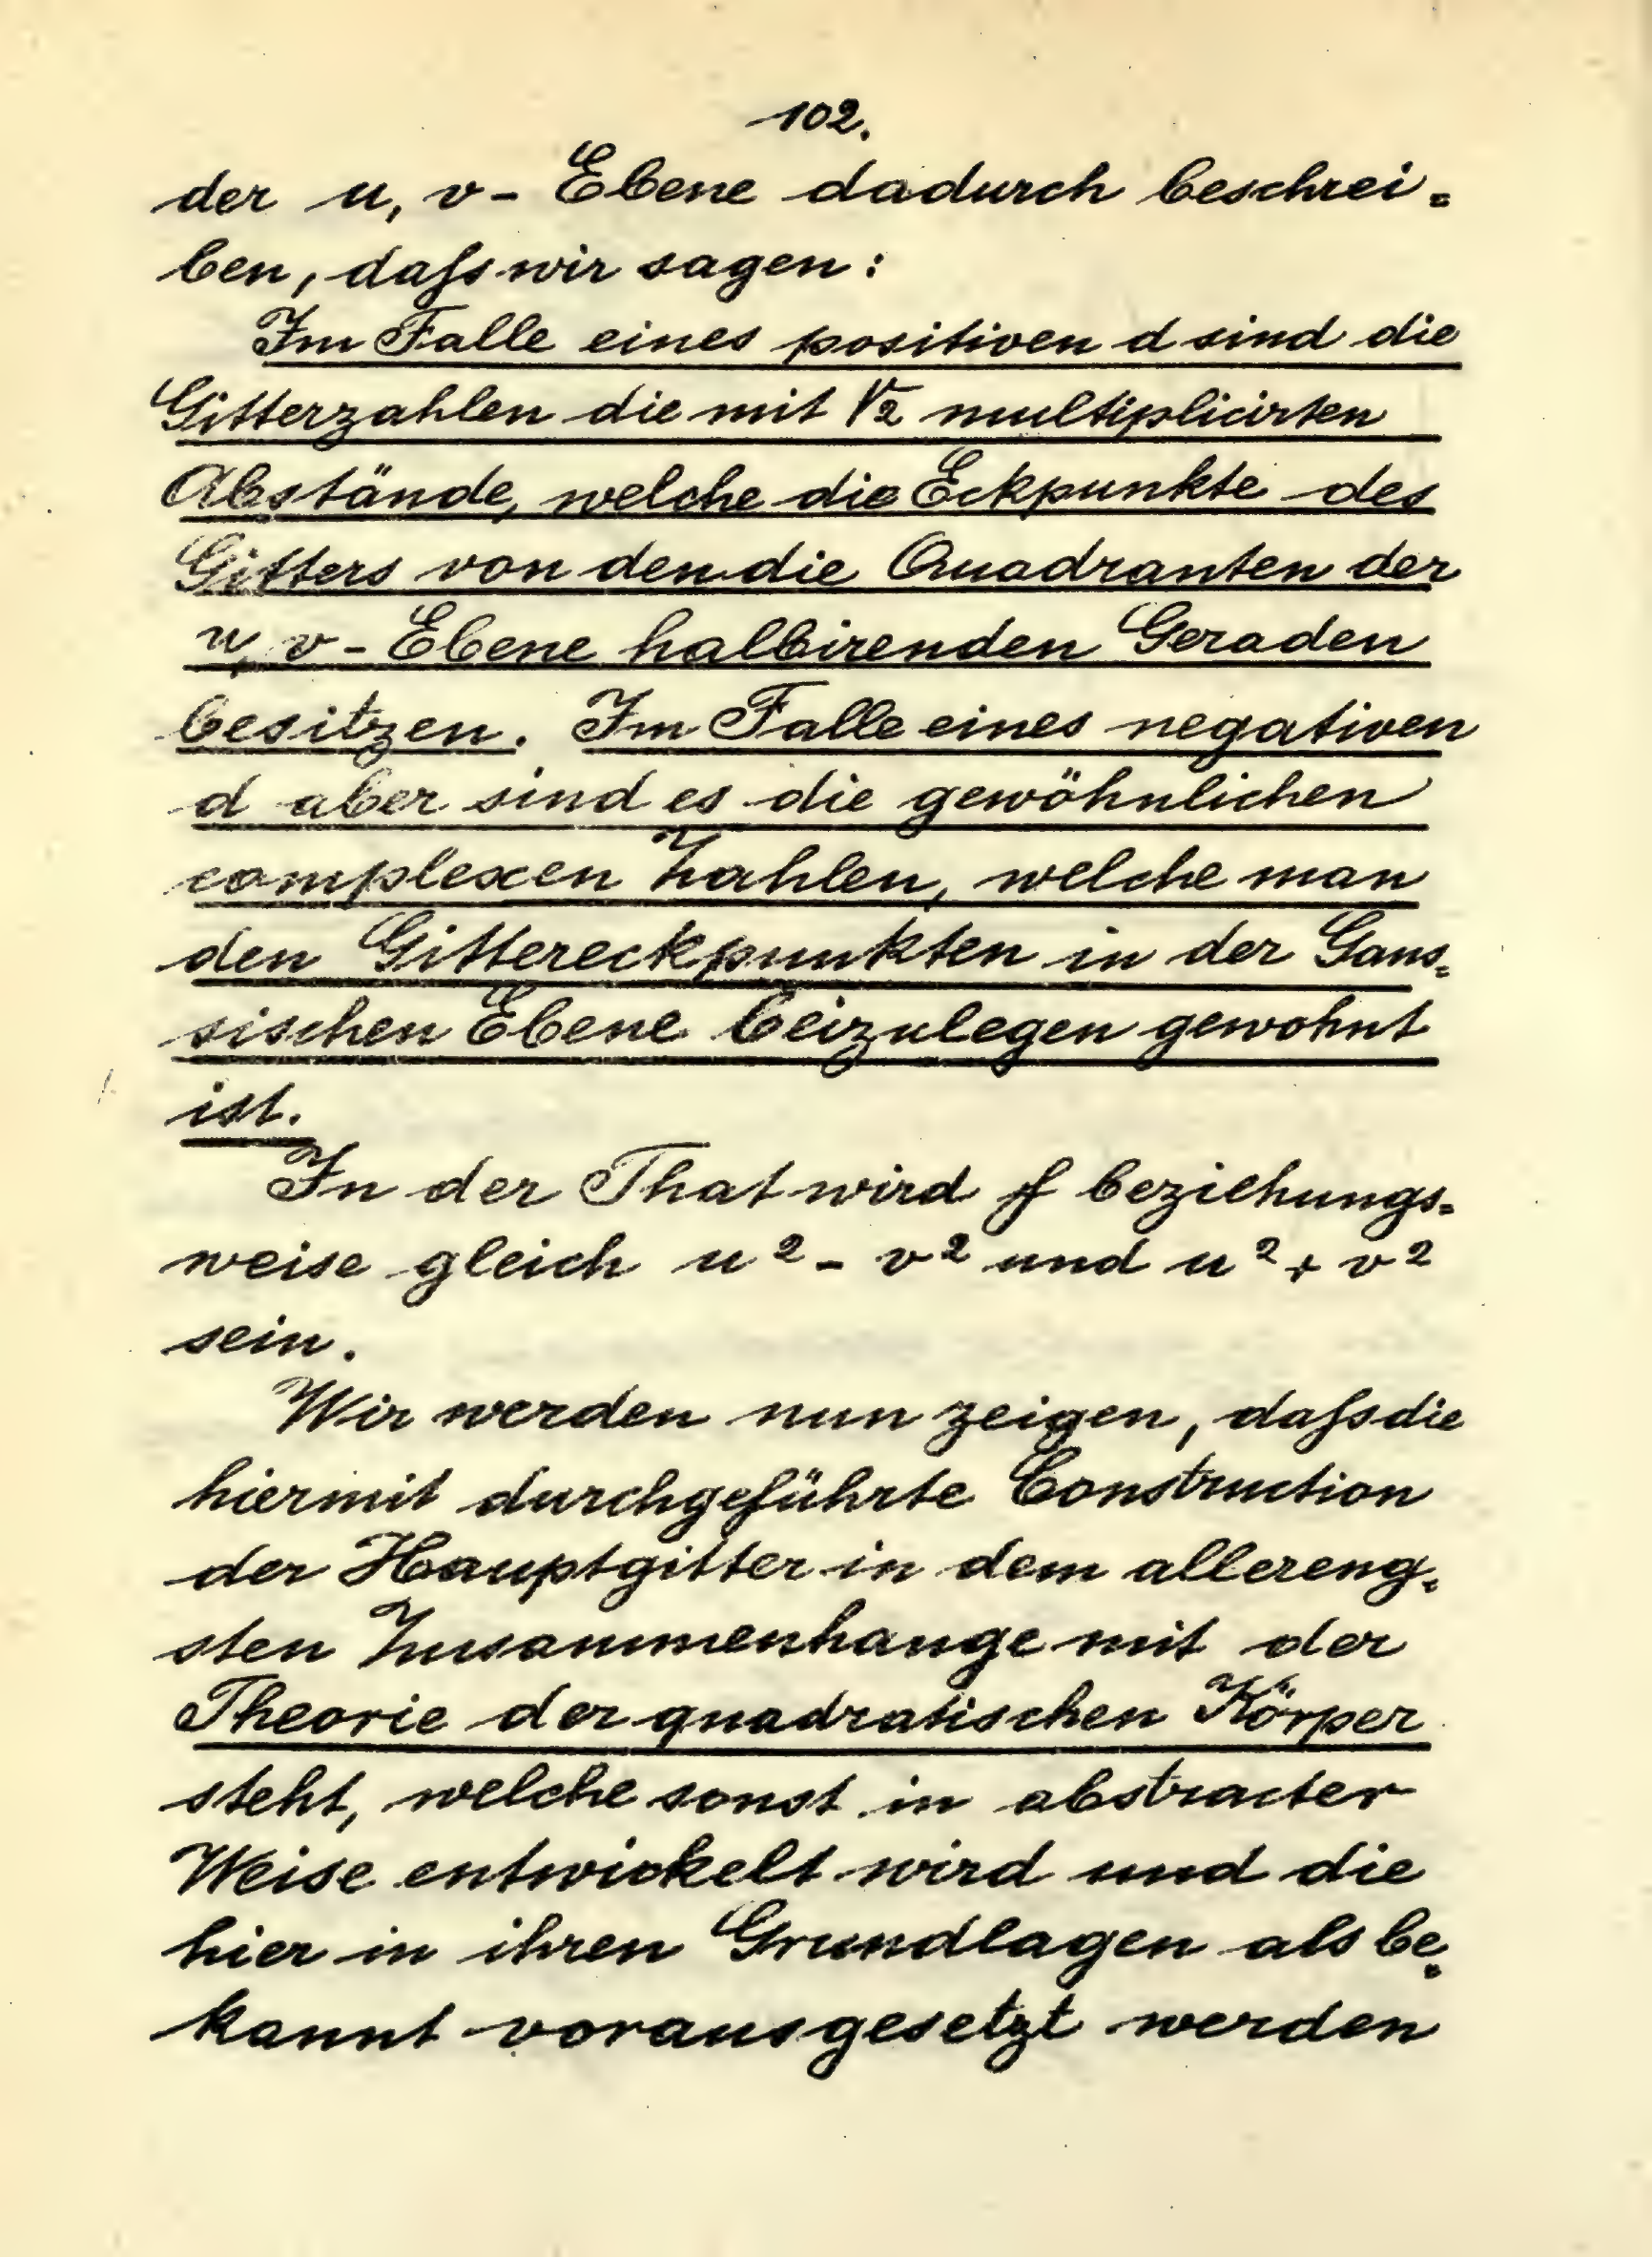 102.
der u, v - Ebene dadurch beschrei=
ben, daſs wir sagen:
Im Falle eines positiven d sind die
Gitterzahlen die mit √2 multiplicirten
Abstände, welche die Eckpunkte des
Gitters von den die Quadranten der
u, v - Ebene halbirenden Geraden
besitzen. Im Falle eines negativen
d aber sind es die gewöhnlichen
complexen Zahlen, welche man
den Gittereckpunkten in der Gaus=
sischen Ebene beizulegen gewohnt
ist.
In der That wird f beziehungs=
weise gleich u² - v² und u² + v²
sein.
Wir werden nun zeigen, daſs die
hiermit durchgeführte Construction
der Hauptgitter in dem allereng=
sten Zusammenhange mit der
Theorie der quadratischen Körper
steht, welche sonst in abstracter
Weise entwickelt wird und die
hier in ihren Grundlagen als be=
kannt vorausgesetzt werden